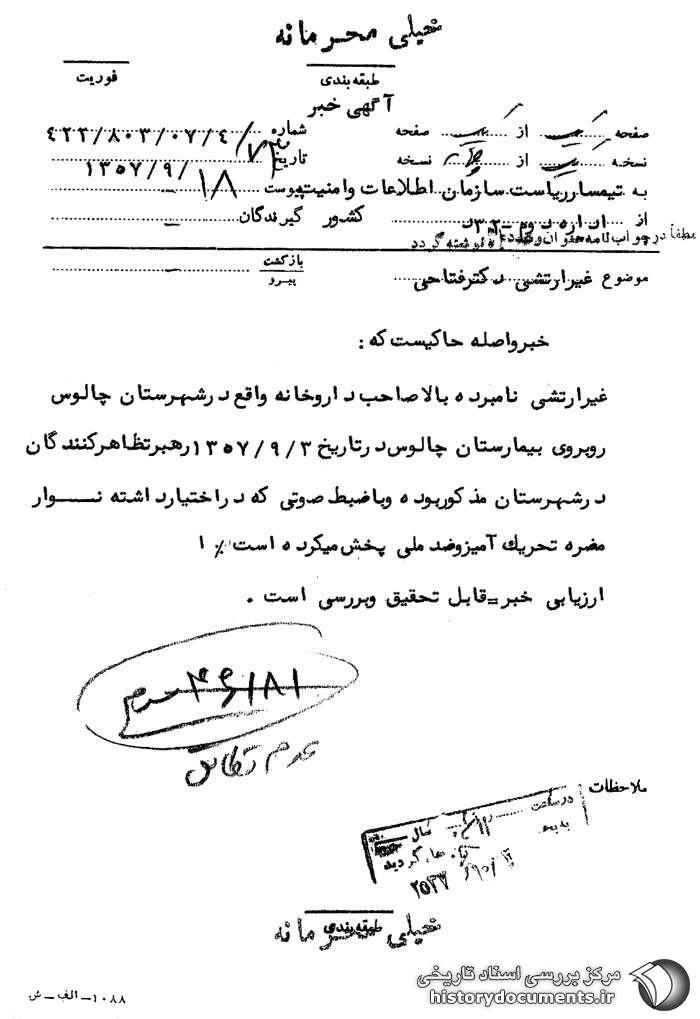 خیلی محرمانه
طبقه‌بندی
فوریت
آگهی خبر
صفحه یک از یک صفحه
شماره ۴۲۲/۸۰۳/۰۷/۴/
نسخه یک از نسخه
تاریخ ۱۳۵۷/۹/۱۸
به تیمسار ریاست سازمان اطلاعات وامنیت
پیوست –
از اداره دوم – ۳۲۰د
کشور
گیرندگان –
لطفا در جواب نامه عنوان و گردد
بازگشت
پیرو –
موضوع غیرارتشی دکترفتاحی
خبرواصله حاکیست که :
غیرارتشی نامبرده بالاصاحب داروخانه واقع درشهرستان چالوس
روبروی بیمارستان چالوس درتاریخ ۱۳۵۷/۹/۳ رهبرتظاهرکنندگان
درشهرستان مذکوربوده وباضبط صوتی که دراختیارداشته نــوار
مضره تحریک آمیزوضد ملی پخش میکرده است٪ ۱
ارزیابی خبر=قابل تحقیق وبررسی است .
عدم
ملاحظات
در ساعت
سال
گردید
۲۵۳۷
طبقه‌بندی
خیلی محرمانه
۱۰۸۸–الف–ش
مرکز بررسی اسناد تاریخی
historydocuments.ir